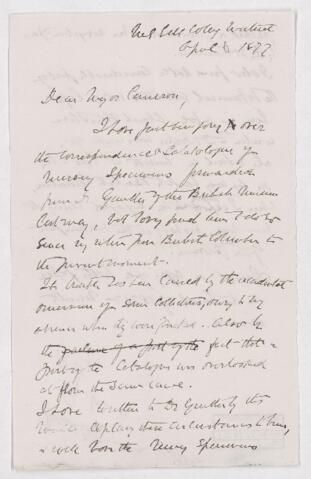 McGill College Montreal
April 8 1877
Dear Major Cameron,
I have just been going over
the correspondence & Catalogue of
Missing Specimens forwarded
from Dr Gunther of the British Museum
not having found time to do so
since my return from British Columbia to
the present moment.
has been caused by the accidental
omission of some collections, owing to my
absence when they were packed. Also by
the failure of a part of the fact that a
part of the Catalogue was overlooked
from the same cause.
I have written to Dr Gunther by this
explain these circumstances to him,
the Missing Specimens